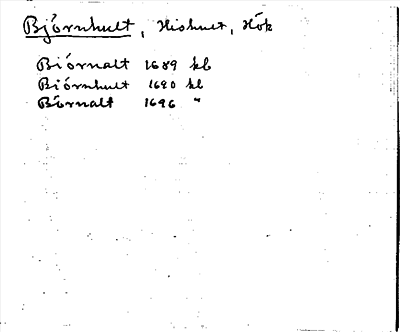 Björnhult, Hishult, Hök
Biörnalt 1689 kb
Biörnhult 1690 kb
Biörnalt 1696 "